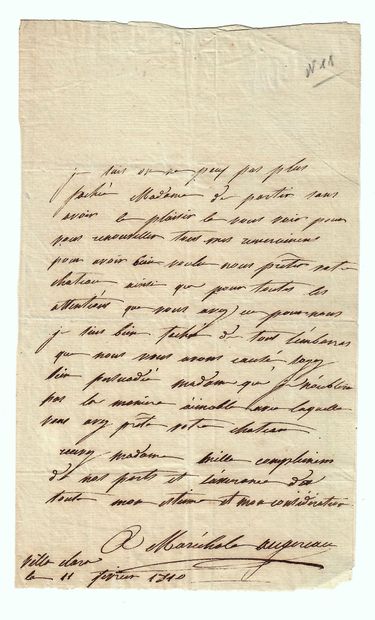 N 11
je suis on ne peux pas plus
fachée Madame de partir sans
avoir le plaisir de vous voir pour
vous renouveller tous mes remerciemens
pour avoir bien voulu nous prêter votre
chateau ainsi que pour toutes les
attentions que vous avez eu pour nous
je suis bien fachée de tous l'embarras
que nous vous avons causé soyez
bien persuadée madame que je n'oublirai
pas la manière aimable avec laquelle
vous avez prêté votre chateau
recevez madame mille complimens
de nos parts et l'assurance de
toute mon estime et mon considération
Maréchale augereau
villa clara
le 11 février 1810